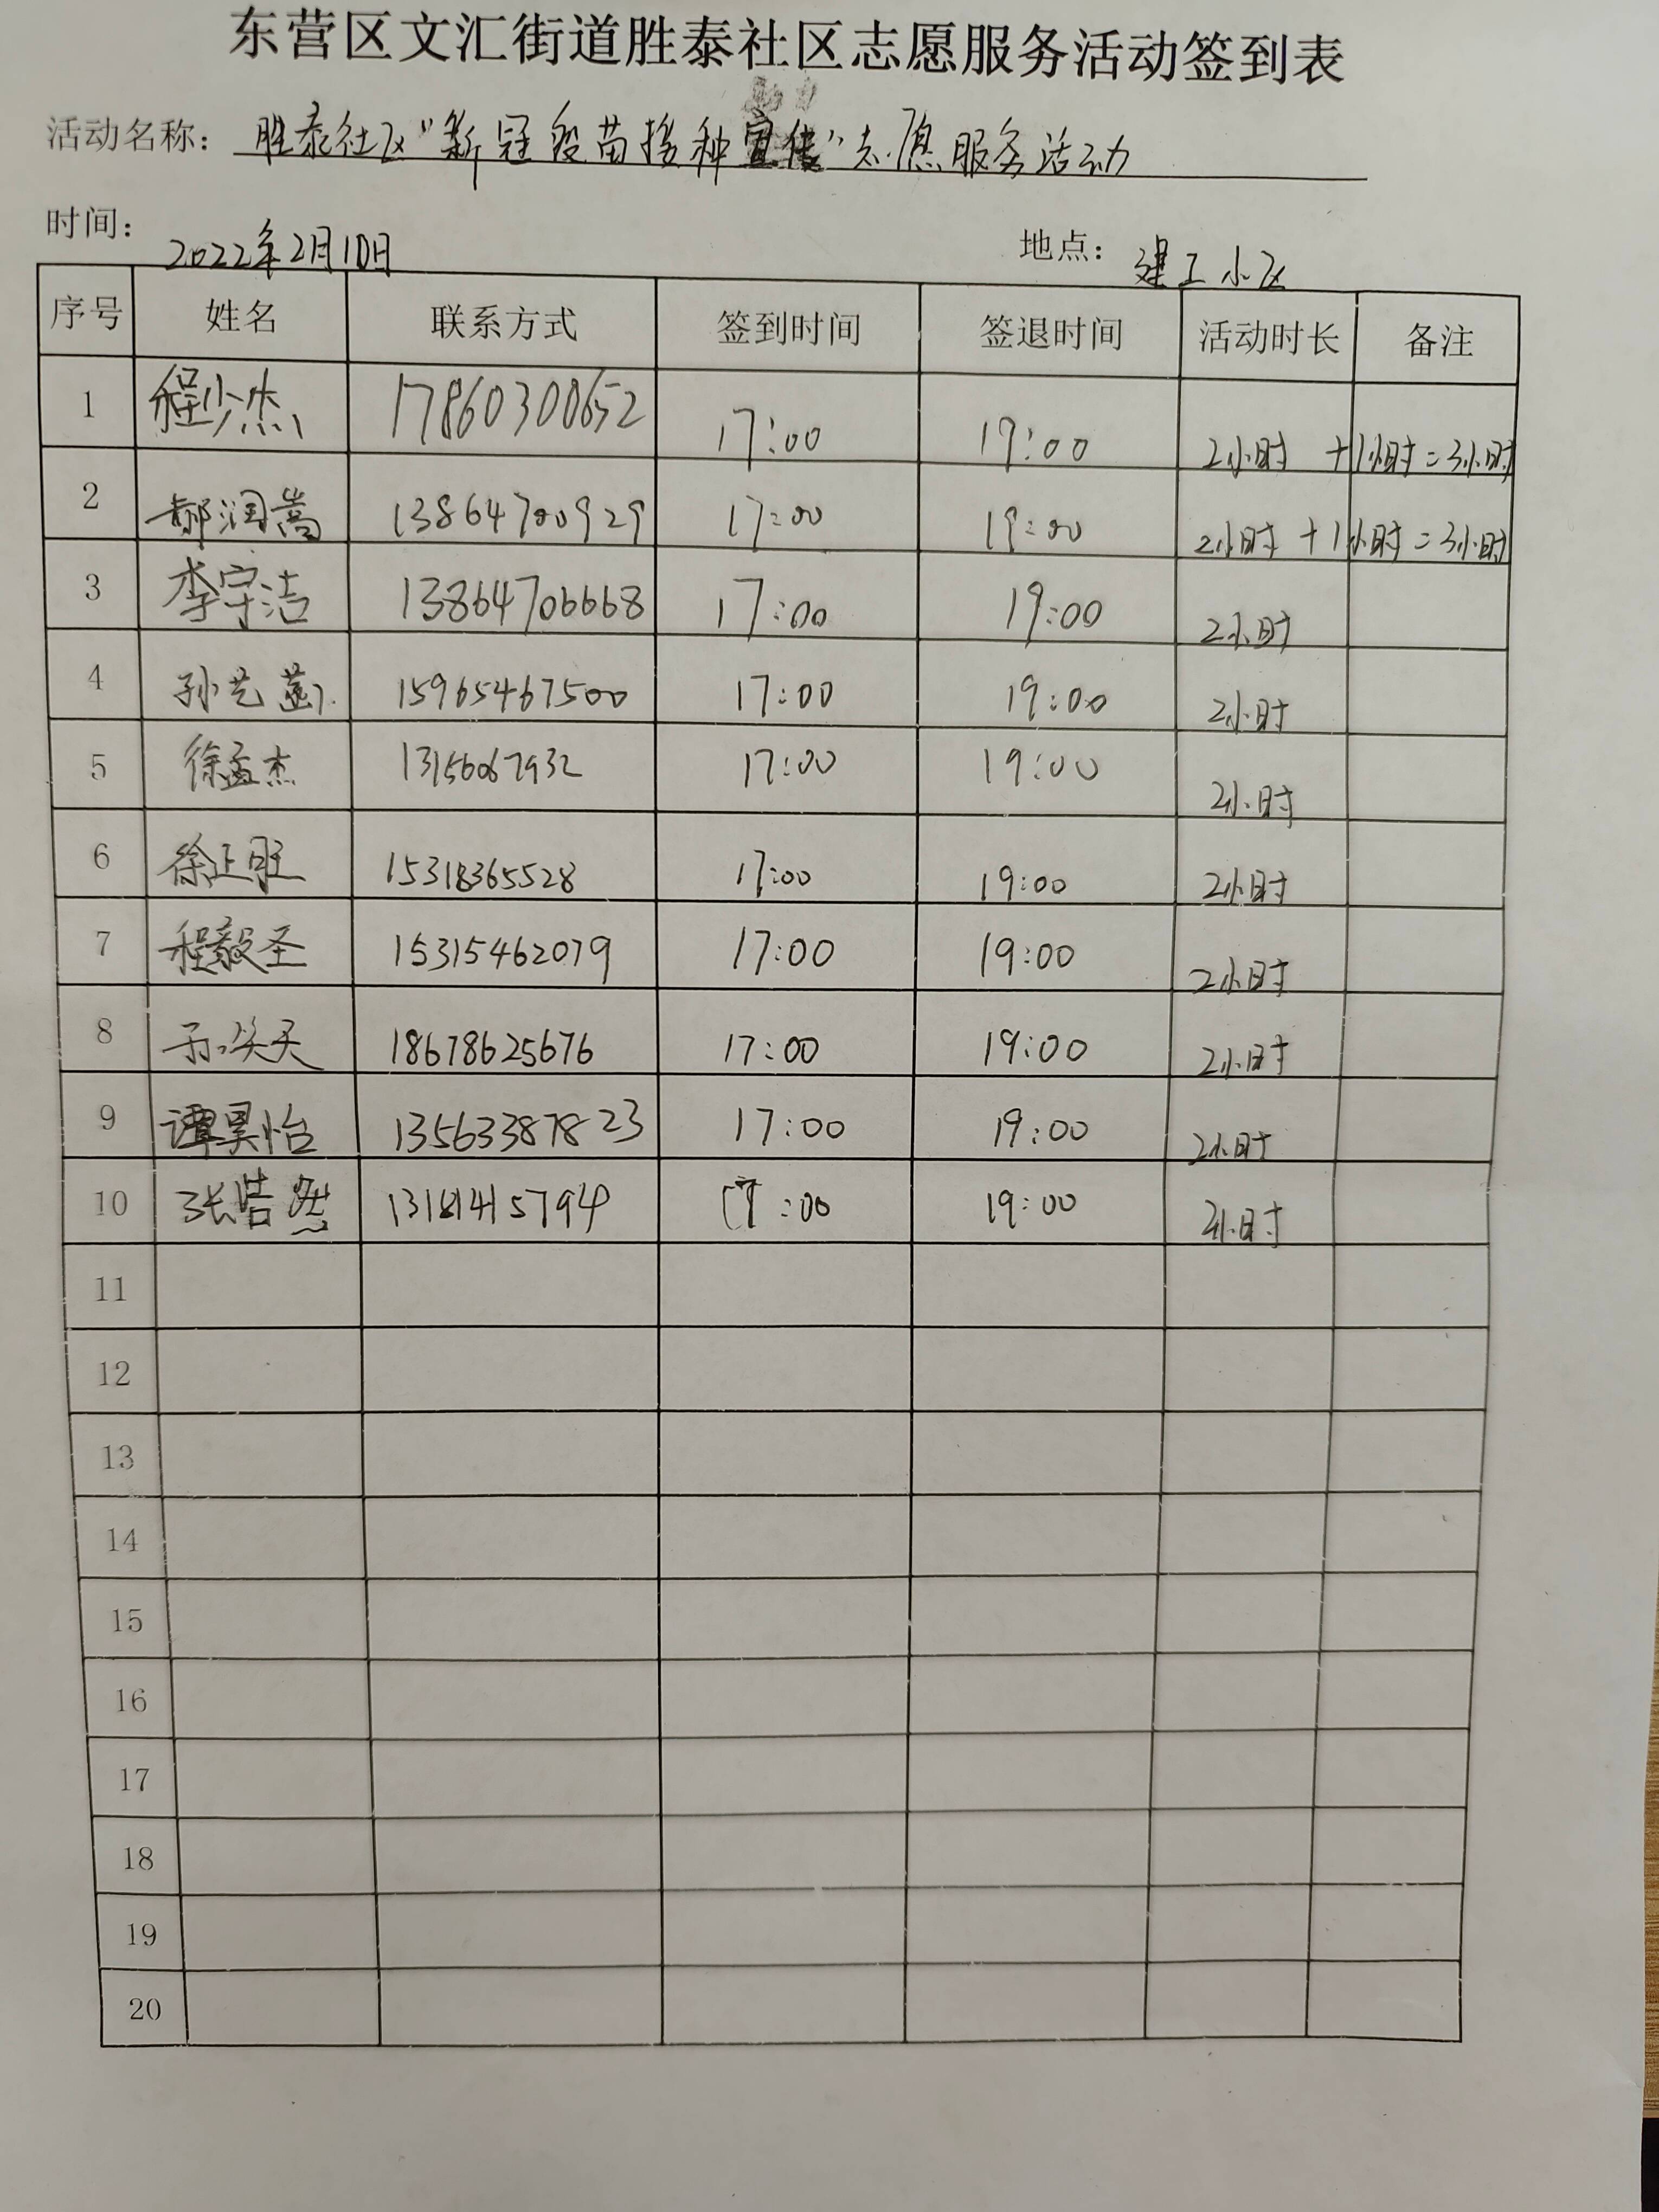 东营区文汇街道胜泰社区志愿服务活动签到表
活动名称: 胜泰社区“新冠疫苗接种宣传”志愿服务活动
时间: 2022年2月10日 地点: 建工小区
序号 姓名 联系方式 签到时间 签退时间 活动时长 备注
1 程少杰 17860300652 17:00 19:00 2小时 +1小时=3小时
2 郝润嵩 13864700929 17:00 19:00 2小时 +1小时=3小时
3 李宇洁 13864706668 17:00 19:00 2小时
4 孙艺 15965467500 17:00 19:00 2小时
5 徐孟杰 13156067932 17:00 19:00 2小时
6 徐正旺 15318365528 17:00 19:00 2小时
7 程毅圣 15315462079 17:00 19:00 2小时
8 18678625676 17:00 19:00 2小时
9 谭昊怡 13563387823 17:00 19:00 2小时
10 张浩然 17:00 19:00 2小时
11
12
13
14
15
16
17
18
19
20